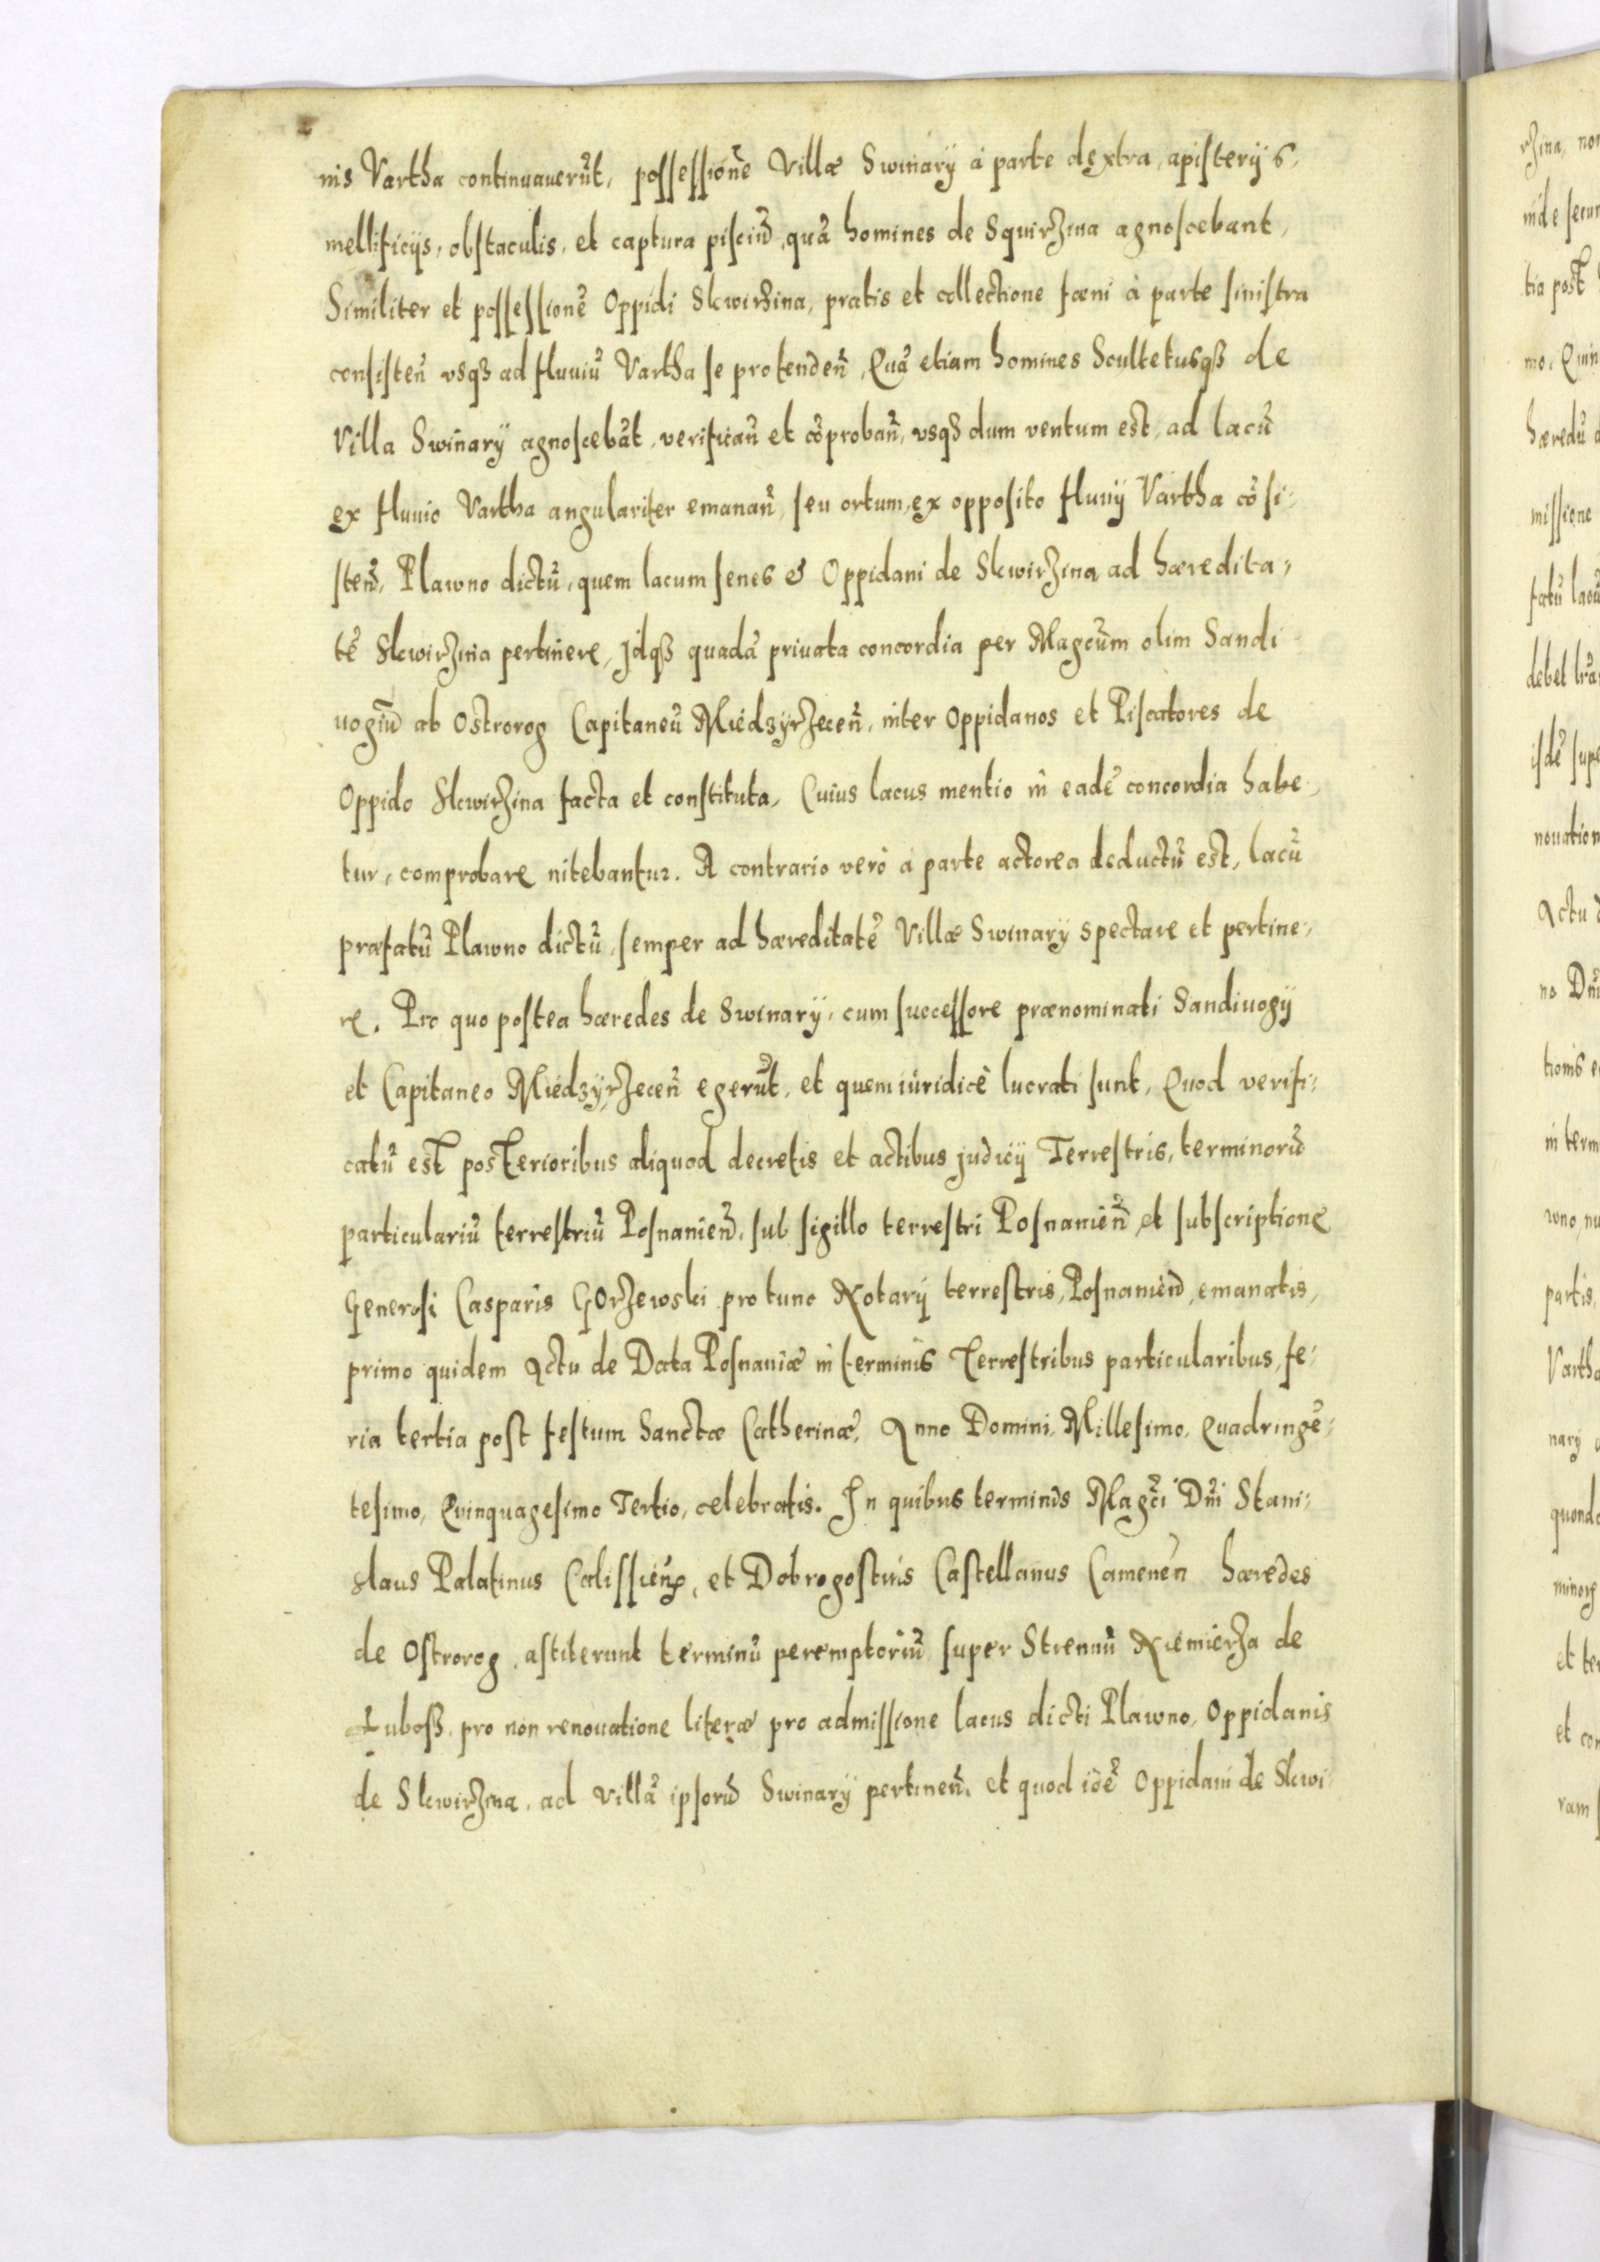 nis Vartha continuauerũt, possessionẽ Villæ Swinarÿ à parte dextra, apisterijs,
mellificijs, obstaculis, et captura pisciũ, quã homines de SquirZina agnoscebant,
Similiter et possessionẽ Oppidi SkwirZina, pratis et collectione fœni à parte sinistra
consisteñ vsqꝫ ad fluuiũ Vartha se protendeñ, Quã etiam homines Scultetusqꝫ de
Villa Swinarÿ agnoscebãt, verificañ et cõprobañ, vsqꝫ dum ventum est, ad lacũ
ex fluuio Vartha angulariter emanañ, seu ortum, ex opposito fluuij Vartha cõsi-
steñ, Plawno dictũ, quem lacum senes et Oppidani de SkwirZina ad hæredita-
tẽ SkwirZina pertinere, Jdqꝫ quadã priuata concordia per Magcũm olim Sandi
uogiũ ab Ostrorog Capitaneũ MiedzyrZeceñ, inter Oppidanos et Piscatores de
Oppido SkwirZina facta et constituta, Cuius lacus mentio in eadẽ concordia habe-
tur, comprobare nitebantur. A contrario verò à parte actorea deductũ est, lacũ
præfatũ Plawno dictũ, semper ad hæreditatẽ Villæ Swinarÿ spectare et pertine-
re. Pro quo postea hæredes de Swinarÿ, cum successore prænominati Sandiuogij
et Capitaneo MiedzyrZeceñ egerũt, et quem iuridicè lucrati sunt, Quod verifi-
catũ est posterioribus aliquod decretis et actibus judicij Terrestris, terminorũ
particulariũ terrestriũ Posnanieñ, sub sigillo terrestri Posnanieñ, et subscriptione
Generosi Casparis GOrZewski pro tunc Notarij terrestris, Posnanieñ, emanatis,
primo quidem Actu de Data Posnaniæ in terminis Terrestribus particularibus, fe-
ria tertia post festum Sanctæ Catherinæ, Anno Domini, Millesimo, Quadringẽ-
tesimo, Quinquagesimo Tertio, celebratis. In quibus terminis Magci Dñi Stani-
slaus Palatinus Calissieñ, et Dobrogostius Castellanus Cameneñ hæredes
de Ostrorog, astiterunt terminũ peremptoriũ super Strenuũ NiemierZa de
Łuboß, pro non renouatione literæ pro admissione lacus dicti Plawno, Oppidanis
de SkwirZina, ad villã ipsorũ Swinarÿ pertineñ, et quod iidẽ Oppidani de Skwi